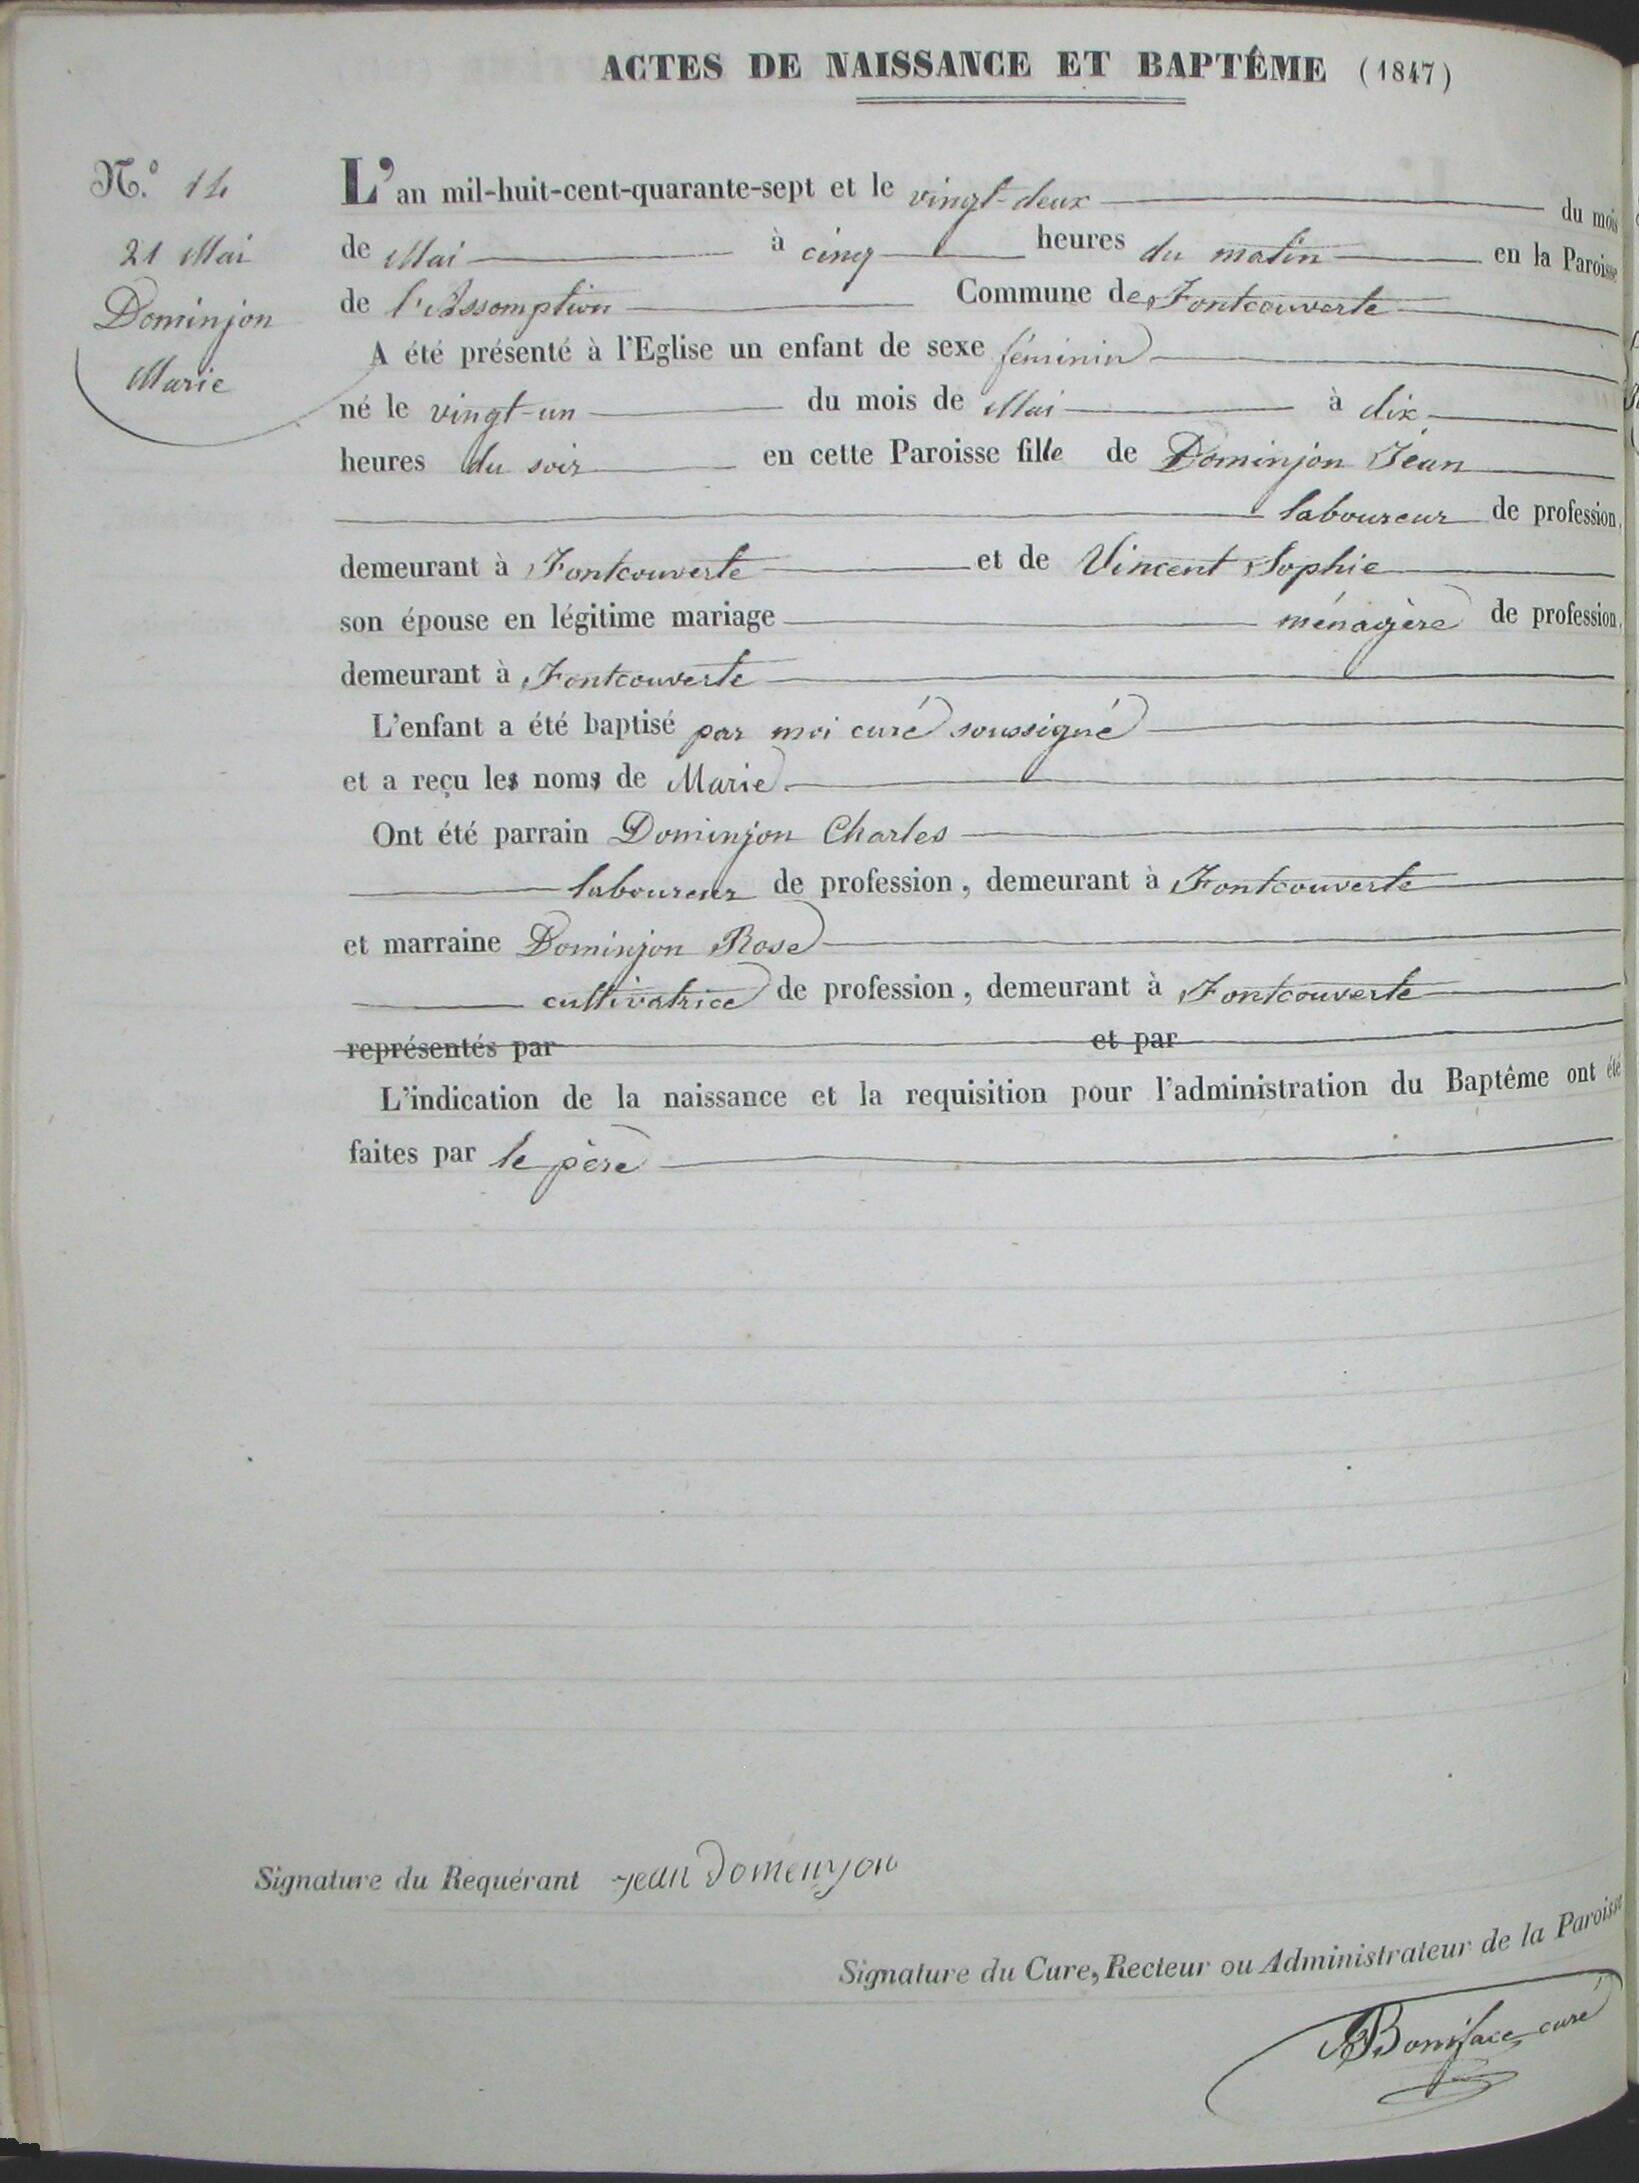 ACTES DE NAISSANCE ET BAPTÊME (1847)
N.º 14
21 Mai
Dominjon
Marie
L'an mil-huit-cent-quarante-sept et le vingt-deux du mois
de Mai à cinq heures du matin en la Paroisse
de l'Assomption Commune de Fontcouverte
A été présenté à l'Eglise un enfant de sexe féminin
né le vingt-un du mois de Mai à dix
heures du soir en cette Paroisse fille de Dominjon Jean
laboureur de profession,
demeurant à Fontcouverte et de Vincent Sophie
son épouse en légitime mariage ménagère de profession,
demeurant à Fontcouverte
L'enfant a été baptisé par moi curé soussigné
et a reçu les noms de Marie
Ont été parrain Dominjon Charles
laboureur de profession, demeurant à Fontcouverte
et marraine Dominjon Rose
cultivatrice de profession, demeurant à Fontcouverte
représentés par et par
L'indication de la naissance et la requisition pour l'administration du Baptême ont été
faites par le père
Signature du Requérant jean domenjon
Signature du Cure, Recteur ou Administrateur de la Paroisse
Boniface curé